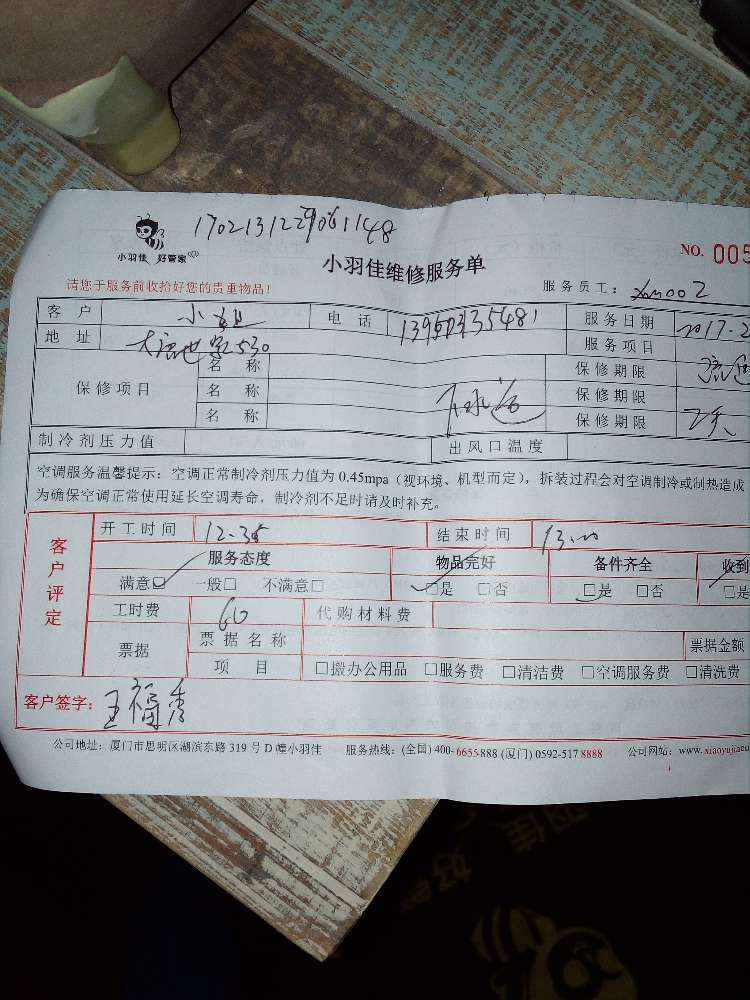 1702131229061148
小羽佳 好管家
小羽佳维修服务单
NO. 005
请您于服务前收拾好您的贵重物品！
服务员工：xm002
客户 小姐 电话 服务日期 2017.2
地址 服务项目
保修项目 名称 保修期限
名称 保修期限
名称 保修期限
制冷剂压力值 出风口温度
空调服务温馨提示：空调正常制冷剂压力值为0.45mpa（视环境、机型而定），拆装过程会对空调制冷或制热造成
为确保空调正常使用延长空调寿命，制冷剂不足时请及时补充。
客户评定
开工时间 12.35 结束时间 13.00
服务态度 物品完好 备件齐全 收到
满意☑ 一般□ 不满意□ □是 □否 □是 □否 □是
工时费 60 代购材料费
票据 票据名称 票据金额
项目 □搬办公用品 □服务费 □清洁费 □空调服务费 □清洗费
客户签字：王福秀
公司地址：厦门市思明区湖滨东路319号D幢小羽佳 服务热线：(全国) 400-6655-888 (厦门) 0592-517 8888 公司网站：www.xiaoyujia